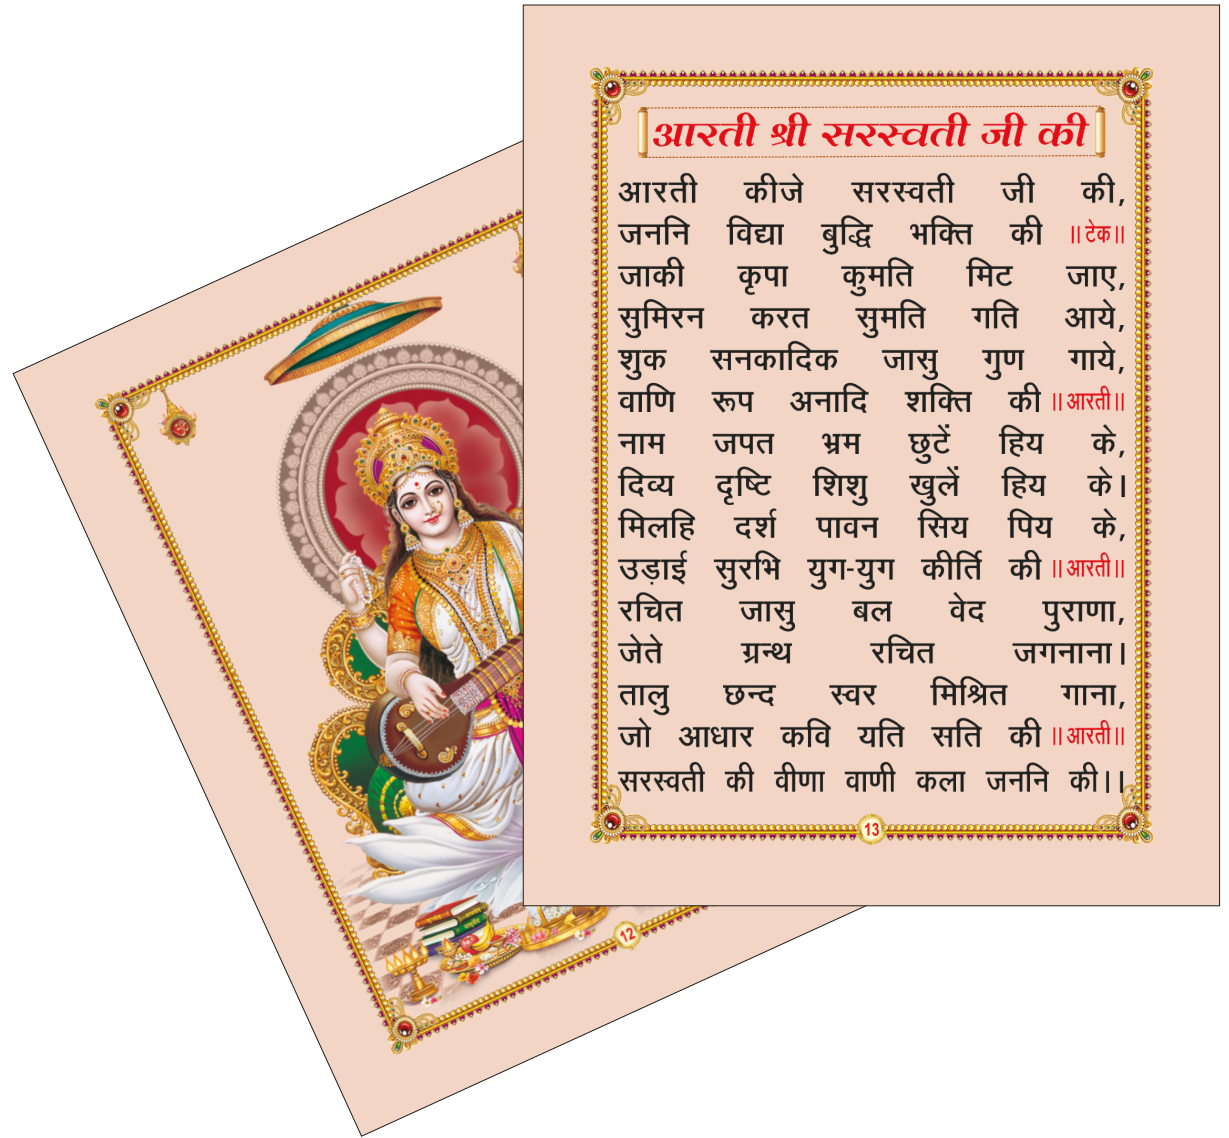 आरती श्री सरस्वती जी की
आरती कीजे सरस्वती जी की,
जननि विद्या बुद्धि भक्ति की ॥ टेक॥
जाकी कृपा कुमति मिट जाए,
सुमिरन करत सुमति गति आये,
शुक सनकादिक जासु गुण गाये,
वाणि रूप अनादि शक्ति की ॥आरती॥
नाम जपत भ्रम छुटें हिय के,
दिव्य दृष्टि शिशु खुलें हिय के।
मिलहि दर्श पावन सिय पिय के,
उड़ाई सुरभि युग-युग कीर्ति की ॥आरती॥
रचित जासु बल वेद पुराणा,
जेते ग्रन्थ रचित जगनाना।
तालु छन्द स्वर मिश्रित गाना,
जो आधार कवि यति सति की ॥आरती॥
सरस्वती की वीणा वाणी कला जननि की।।
13
12